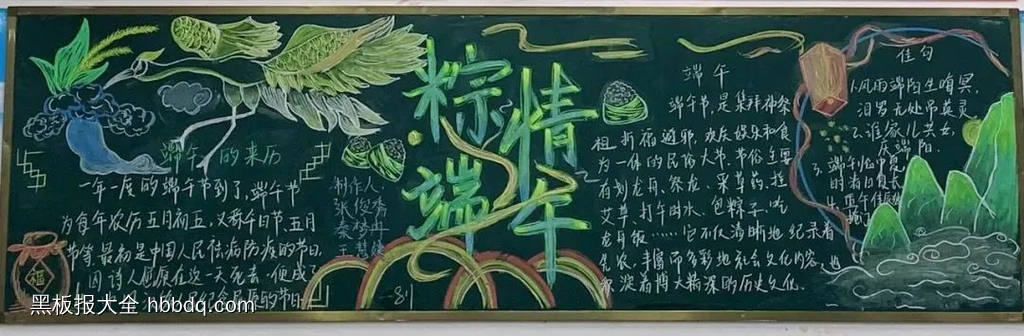 端午的来历
一年一度的端午节到了,端午节
为每年农历五月初五,又称午日节、五月
节等。最初是中国人民祛病防疫的节日,
因诗人屈原在这一天死去,便成了
的节日
制作人:
粽情
端午
81
端午
端午节,是集拜神祭
祖、祈福辟邪、欢庆娱乐和食
为一体的民俗大节。节俗主要
有划龙舟、祭龙、采草药、挂
艾草、打午时水、包粽子、吃
龙舟饭……它不仅清晰地纪录着
先农、丰富而多彩地社会文化内容,也
淀着博大精深的历史文化。
佳句
1.风雨端阳生晦冥,
汨罗无处吊英灵
2.谁家儿共女,
庆端阳。
3.端午临中夏,
时清日复长
福
黑板报大全 hbbdq.com